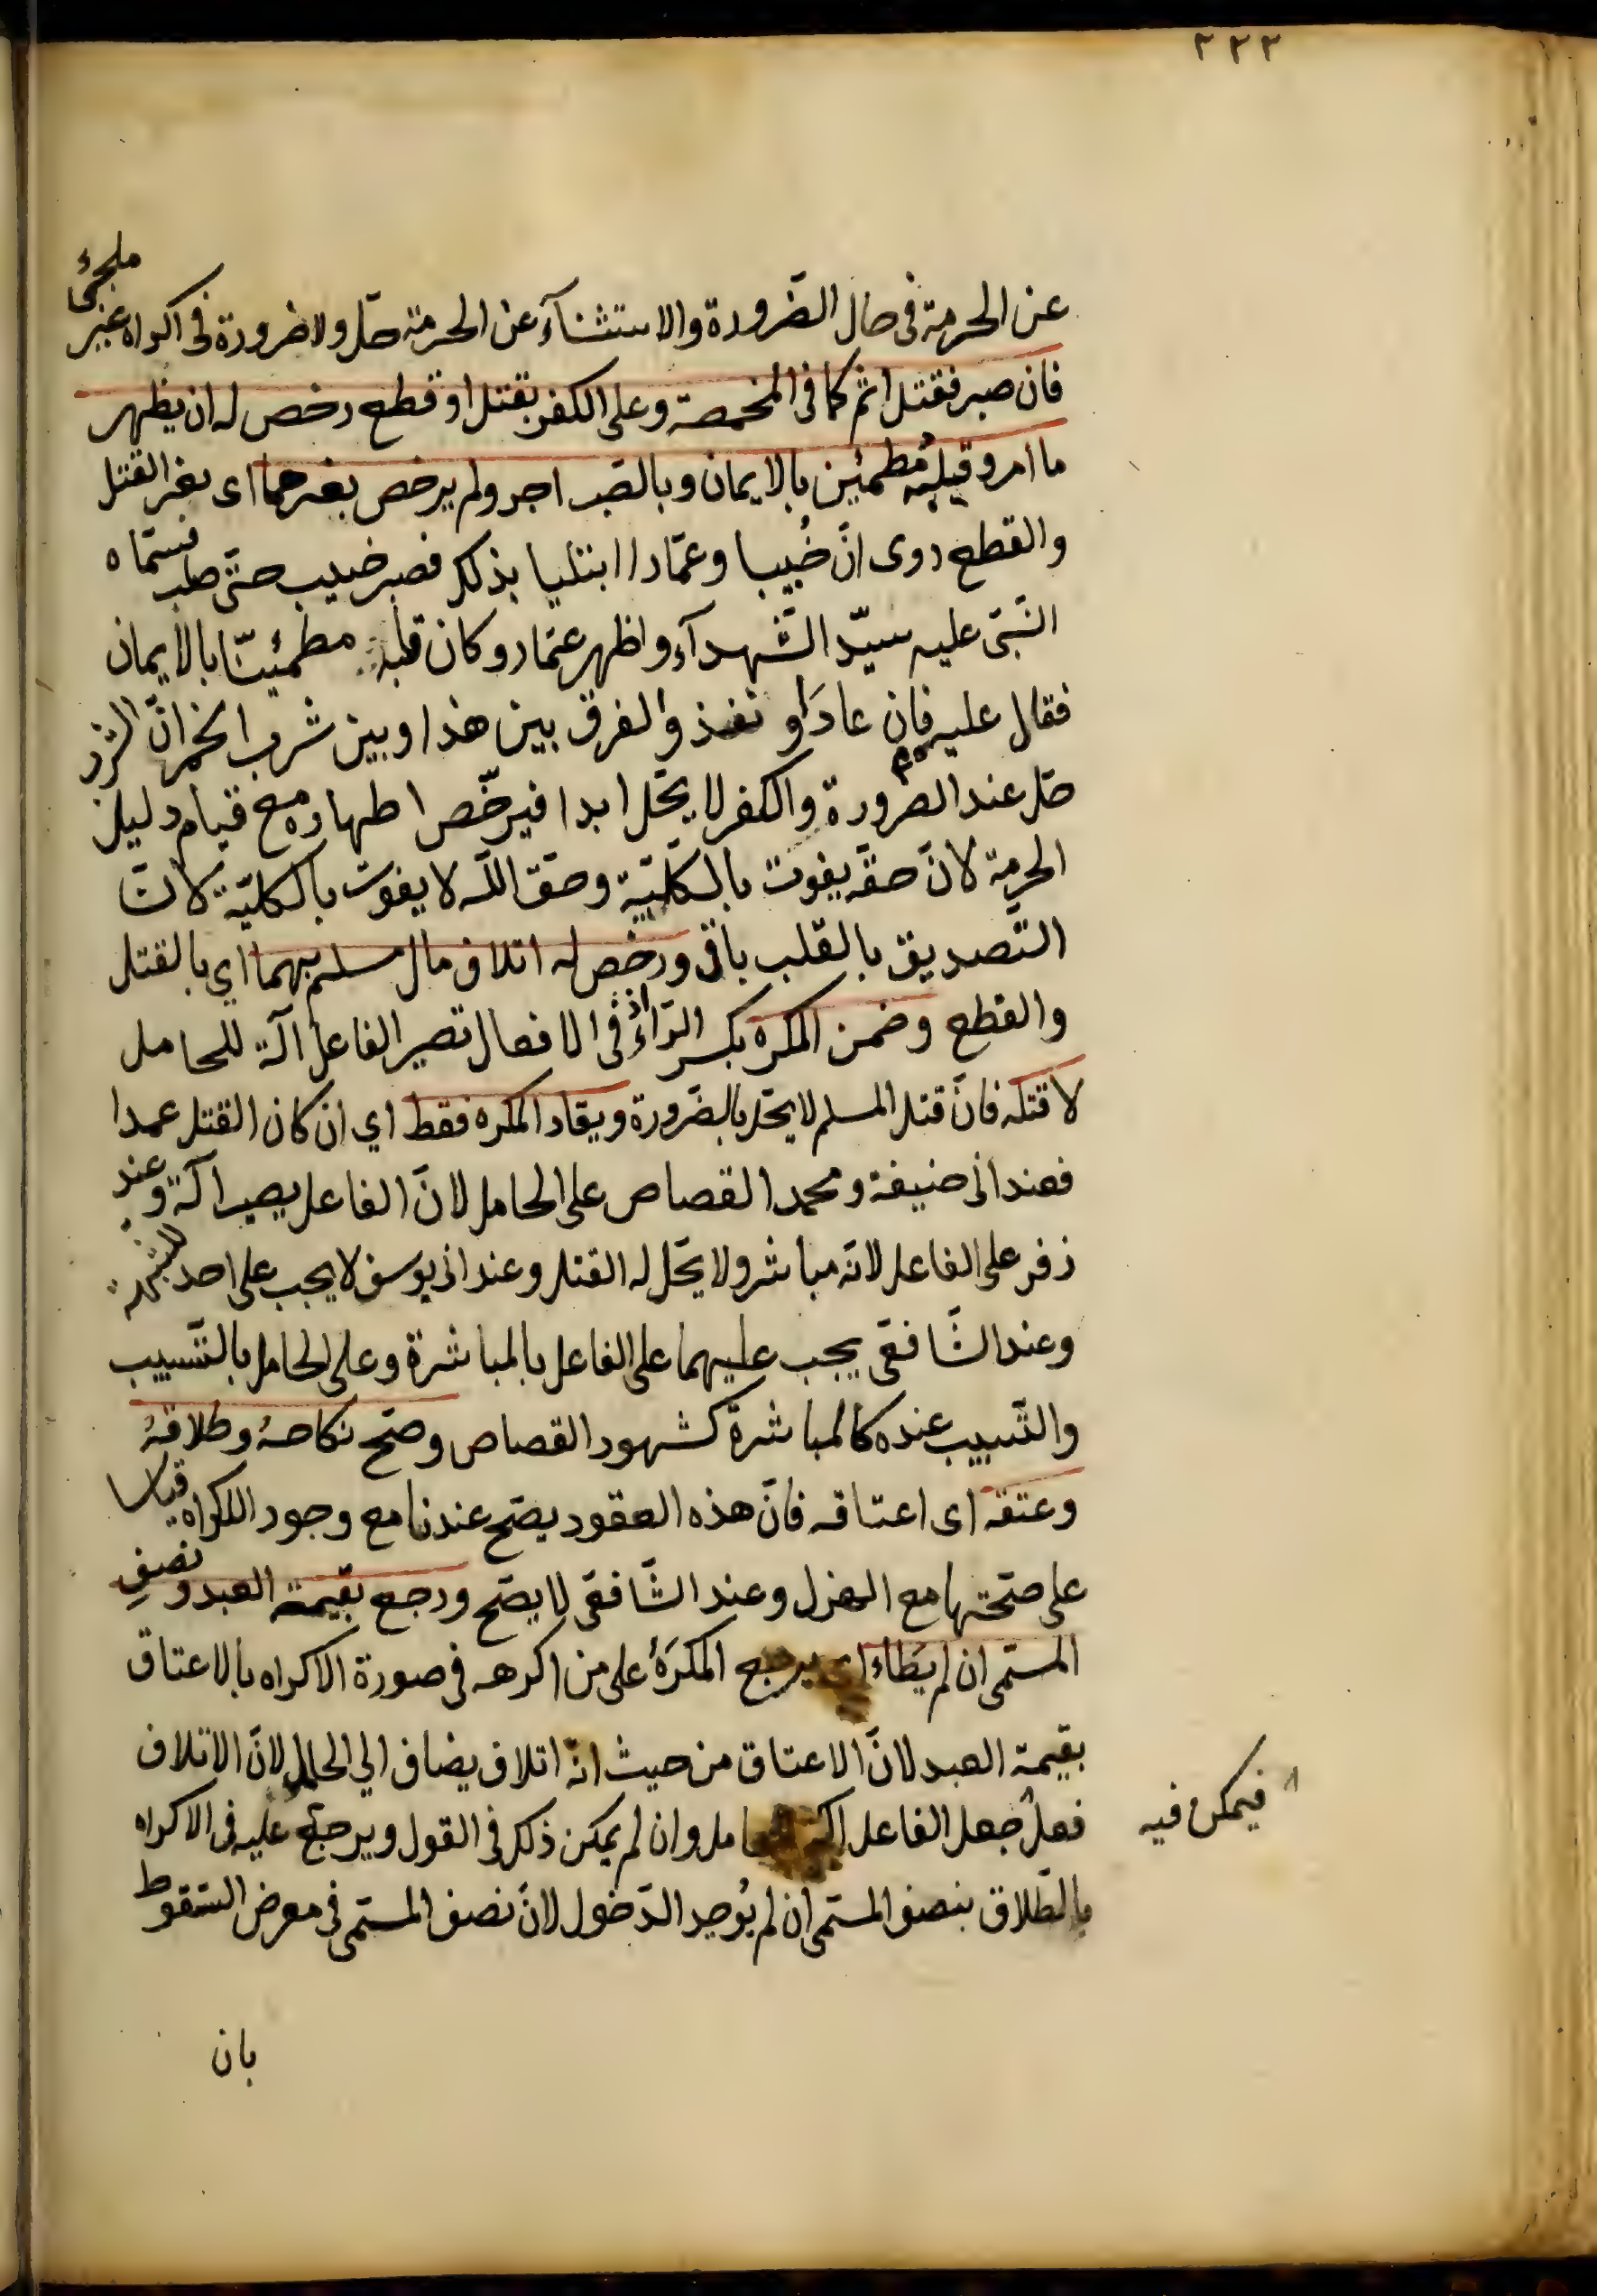 ٢٢٢
عن الحرمة فى حال الضّرورة والاستثنآء عن الحرمة حلّ ولا ضرورة فى اكراه غير ملجئ
فان صبر فقتل اثم كما فى المخمصة وعلى الكفر بقتل او قطع رخص له ان يظهر
ما امر وقلبه مُطمئين بالايمان وبالصّبر اجر ولم يرخص بغيرهما اى بغير القتل
والقطع روى انّ خُبيبا وعمّارا ابتليا بذلك فصبر خبيب حتّى صلب فسمّاه
النّبى عليه سيّد الشّهدآء واظهر عمّار وكان قلبه مطمئينّا بالايمان
فقال عليه فان عادَوا فعد والفرق بين هذا وبين شرب الخمر انّ الشّرب
حلّ عند الضرورة والكفر لا يحّل ابدا فيرخّص اظهاره مع قيام دليل
الحرمة لانّ حقّه يفوت بالكلّيّة وحقّ اللّه لا يفوت بالكليّة لانّ
التّصديق بالقلب باقٍ ورخص له اتلاف مال مسلم بهما اي بالقتل
والقطع وضمن المكره بكسر الرّاء اذ فى الافعال تصير الفاعل آلة للحامل
لا قتله فانّ قتل المسلم لا يحّل بالضّرورة ويقاد المكره فقط اي ان كان القتل عمدا
فعند ابى حنيفة ومحمد القصاص على الحامل لانّ الفاعل يصير آلة وعند
زفر على الفاعل لانّه مباشر ولا يحّل له القتل وعند ابى يوسف لا يجب على احد للشبهة
وعند الشّافعىّ يجب عليهما على الفاعل بالمباشرة وعلى الحامل بالتّسبيب
والتّسبيب عنده كالمباشرة كشهود القصاص وصحّ نكاحهُ وطلاقهُ
وعتقه اى اعتاقه فانّ هذه العقود يصّح عندنا مع وجود الاكراه قياسا
على صحّتها مع الهزل وعند الشّافعىّ لا يصّح ورجع بقيمة العبد ونصفِ
المسمّى ان لم يَطاء اى يرجع المكرَهُ على من اكرهه فى صورة الاكراه بالاعتاق
بقيمة العبد لانّ الاعتاق من حيث انّه اتلاف يضاف الي الحامل لانّ الاتلاف
فعلٌ جعل الفاعل آلة للحامل وان لم يمكن ذلك فى القول ويرجع عليه فى الاكراه
بالطّلاق بنصف المسمّى ان لم يُوجد الدّخول لانّ نصف المسمّى فى معرض السّقوط
فيمكن فيه
بان